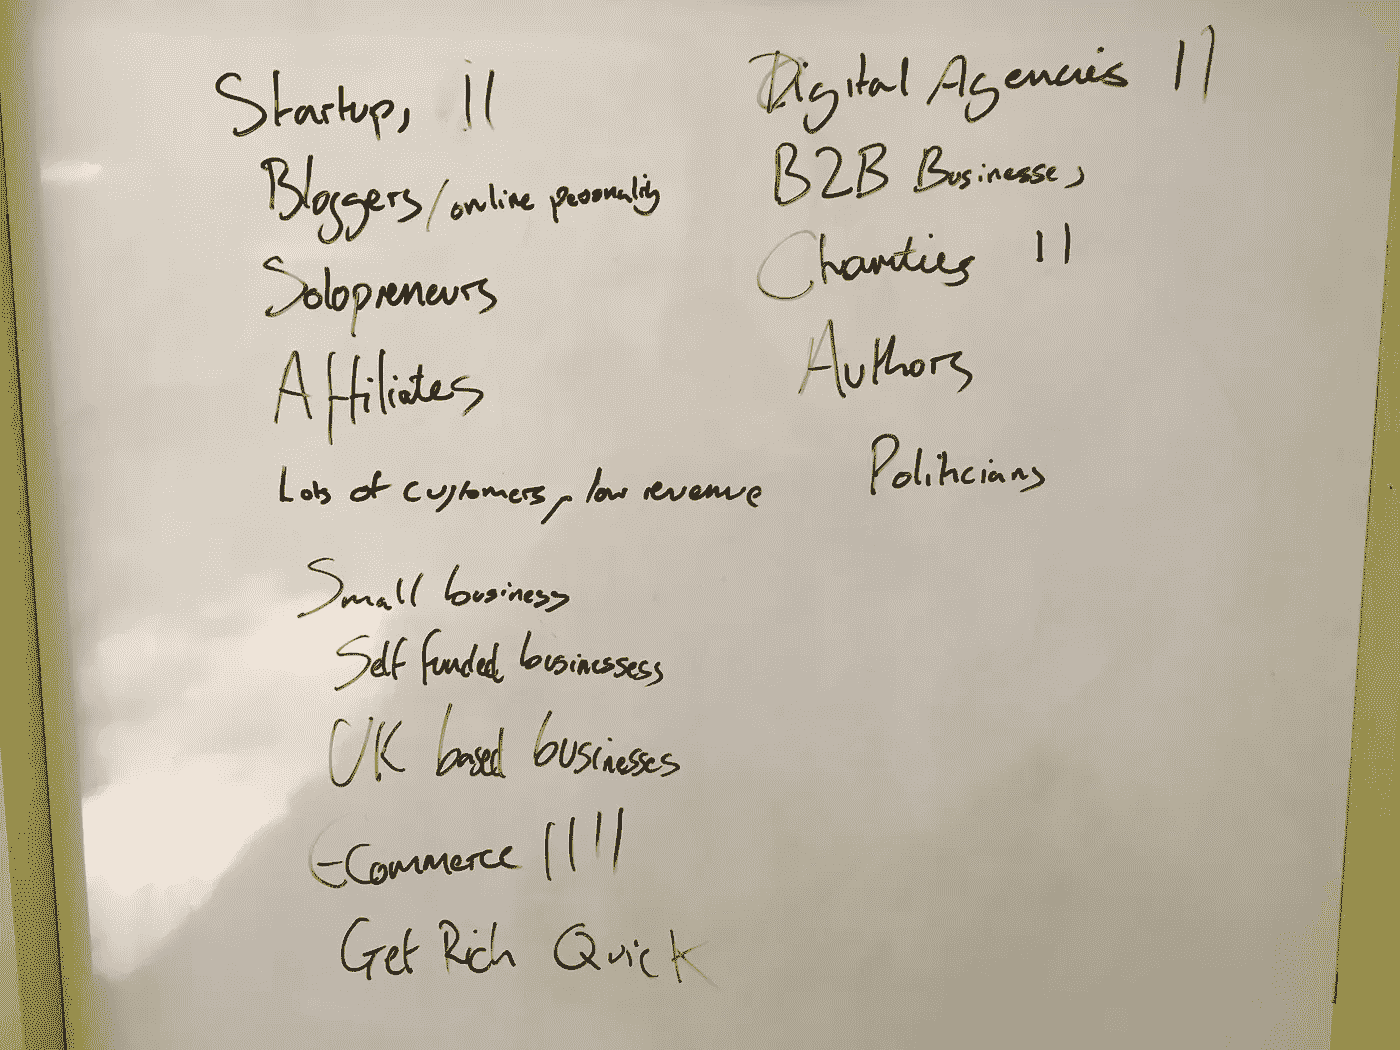 Startups ||
Bloggers/online personality
Solopreneurs
Affiliates
Lots of customers, low revenue
Small business
Self funded businessess
UK based businesses
E-Commerce ||||
Get Rich Quick
Digital Agencies ||
B2B Businesses
Charities ||
Authors
Politicians